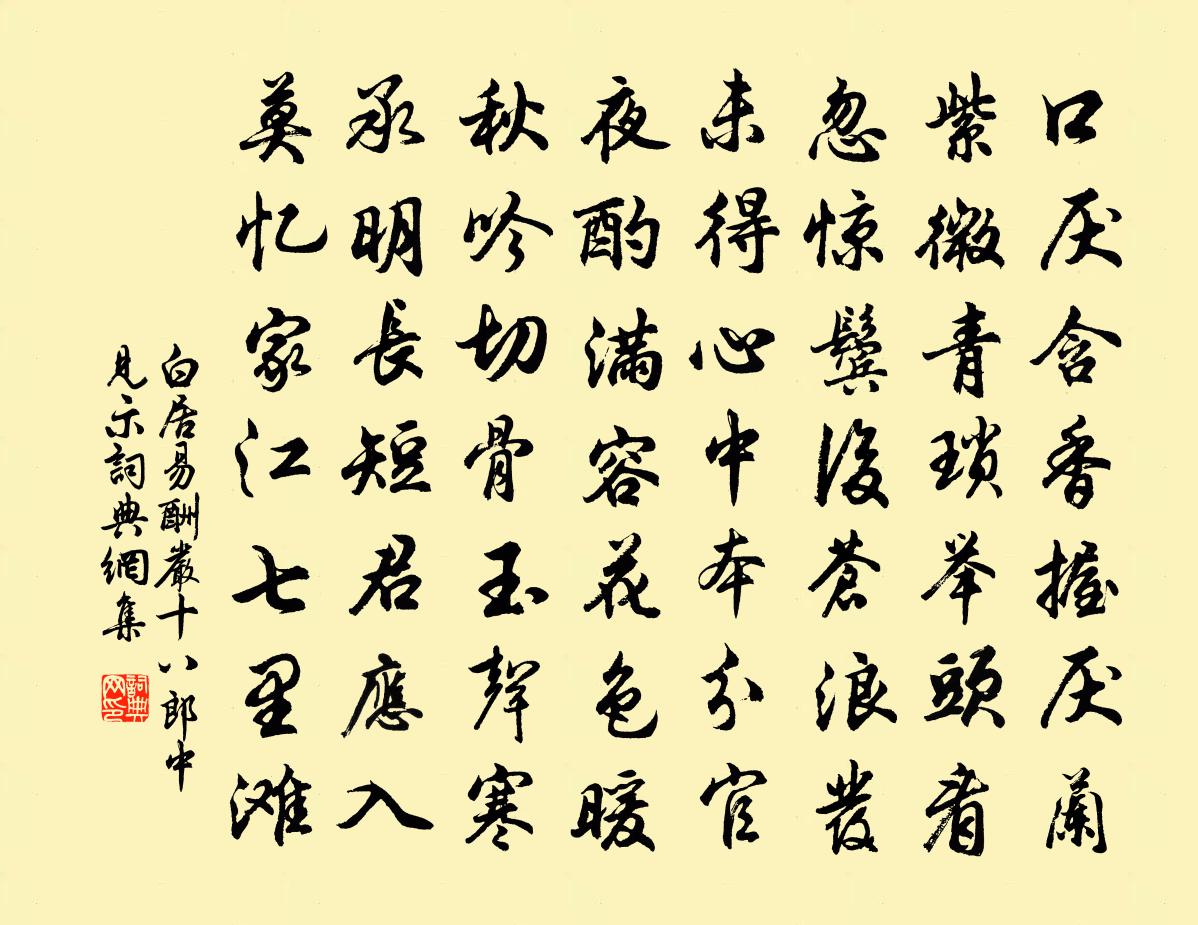 口厌含香握厌蘭
紫微青瑣举頭看
忽惊鬓後蒼浪發
未得心中本分官
夜酌满容花色暖
秋吟切骨玉聲寒
承明長短君應入
莫忆家江七里滩
白居易酬嚴十八郎中
見示詞典網集
詞典网印